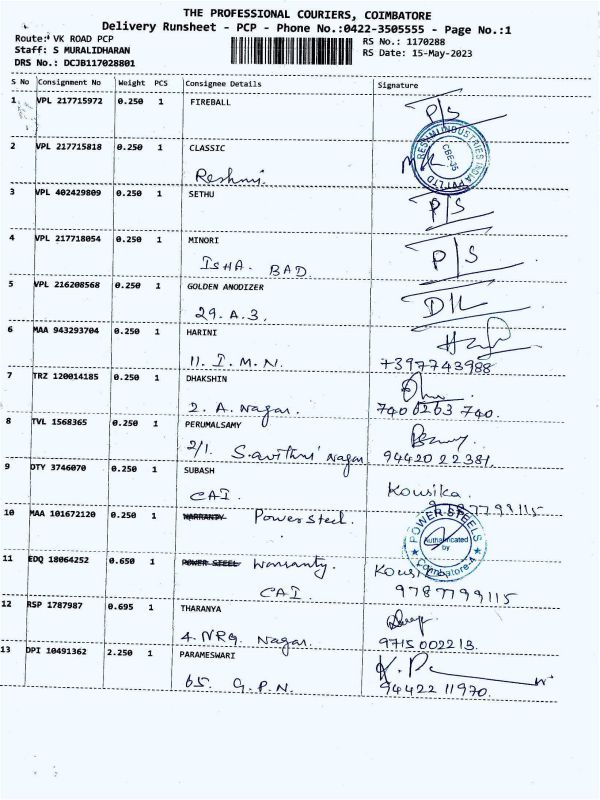 THE PROFESSIONAL COURIERS, COIMBATORE
Delivery Runsheet - PCP - Phone No.:0422-3505555 - Page No.:1
Route: VK ROAD PCP
RS No.: 1170288
Staff: S MURALIDHARAN
RS Date: 15-May-2023
DRS No.: DCJB117028801
S No Consignment No Weight PCS Consignee Details Signature
1 VPL 217715972 0.250 1 FIREBALL P/S
2 VPL 217715818 0.250 1 CLASSIC
Reshmi.
RESHMI INDUSTRIES INDIA PVT LTD CBE-35
3 VPL 402429809 0.250 1 SETHU P/S
4 VPL 217718054 0.250 1 MINORI P/S
ISHA. BAD.
5 VPL 216208568 0.250 1 GOLDEN ANODIZER D/L
29. A.3.
6 MAA 943293704 0.250 1 HARINI
11. I.M.N. +397743988
7 TRZ 120014185 0.250 1 DHAKSHIN
2. A. Nagar. 7406263740.
8 TVL 1568365 0.250 1 PERUMALSAMY
2/1. Savithri Nagar 9442022381.
9 DTY 3746070 0.250 1 SUBASH Kousika.
CAI. 9787799115
10 MAA 101672120 0.250 1 WARRANTY Power Steel.
POWER STEELS Authenticated by Coimbatore-4
11 EDQ 18064252 0.650 1 POWER STEEL Warranty.
CAI. 9787799115
12 RSP 1787987 0.695 1 THARANYA
4. NRG Nagar. 9715002213.
13 DPI 10491362 2.250 1 PARAMESWARI
65. G.P.N. 9442211970.